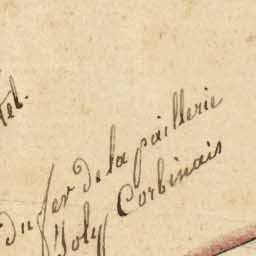 tel.
du fer de la paillerie
Joly Corbinais